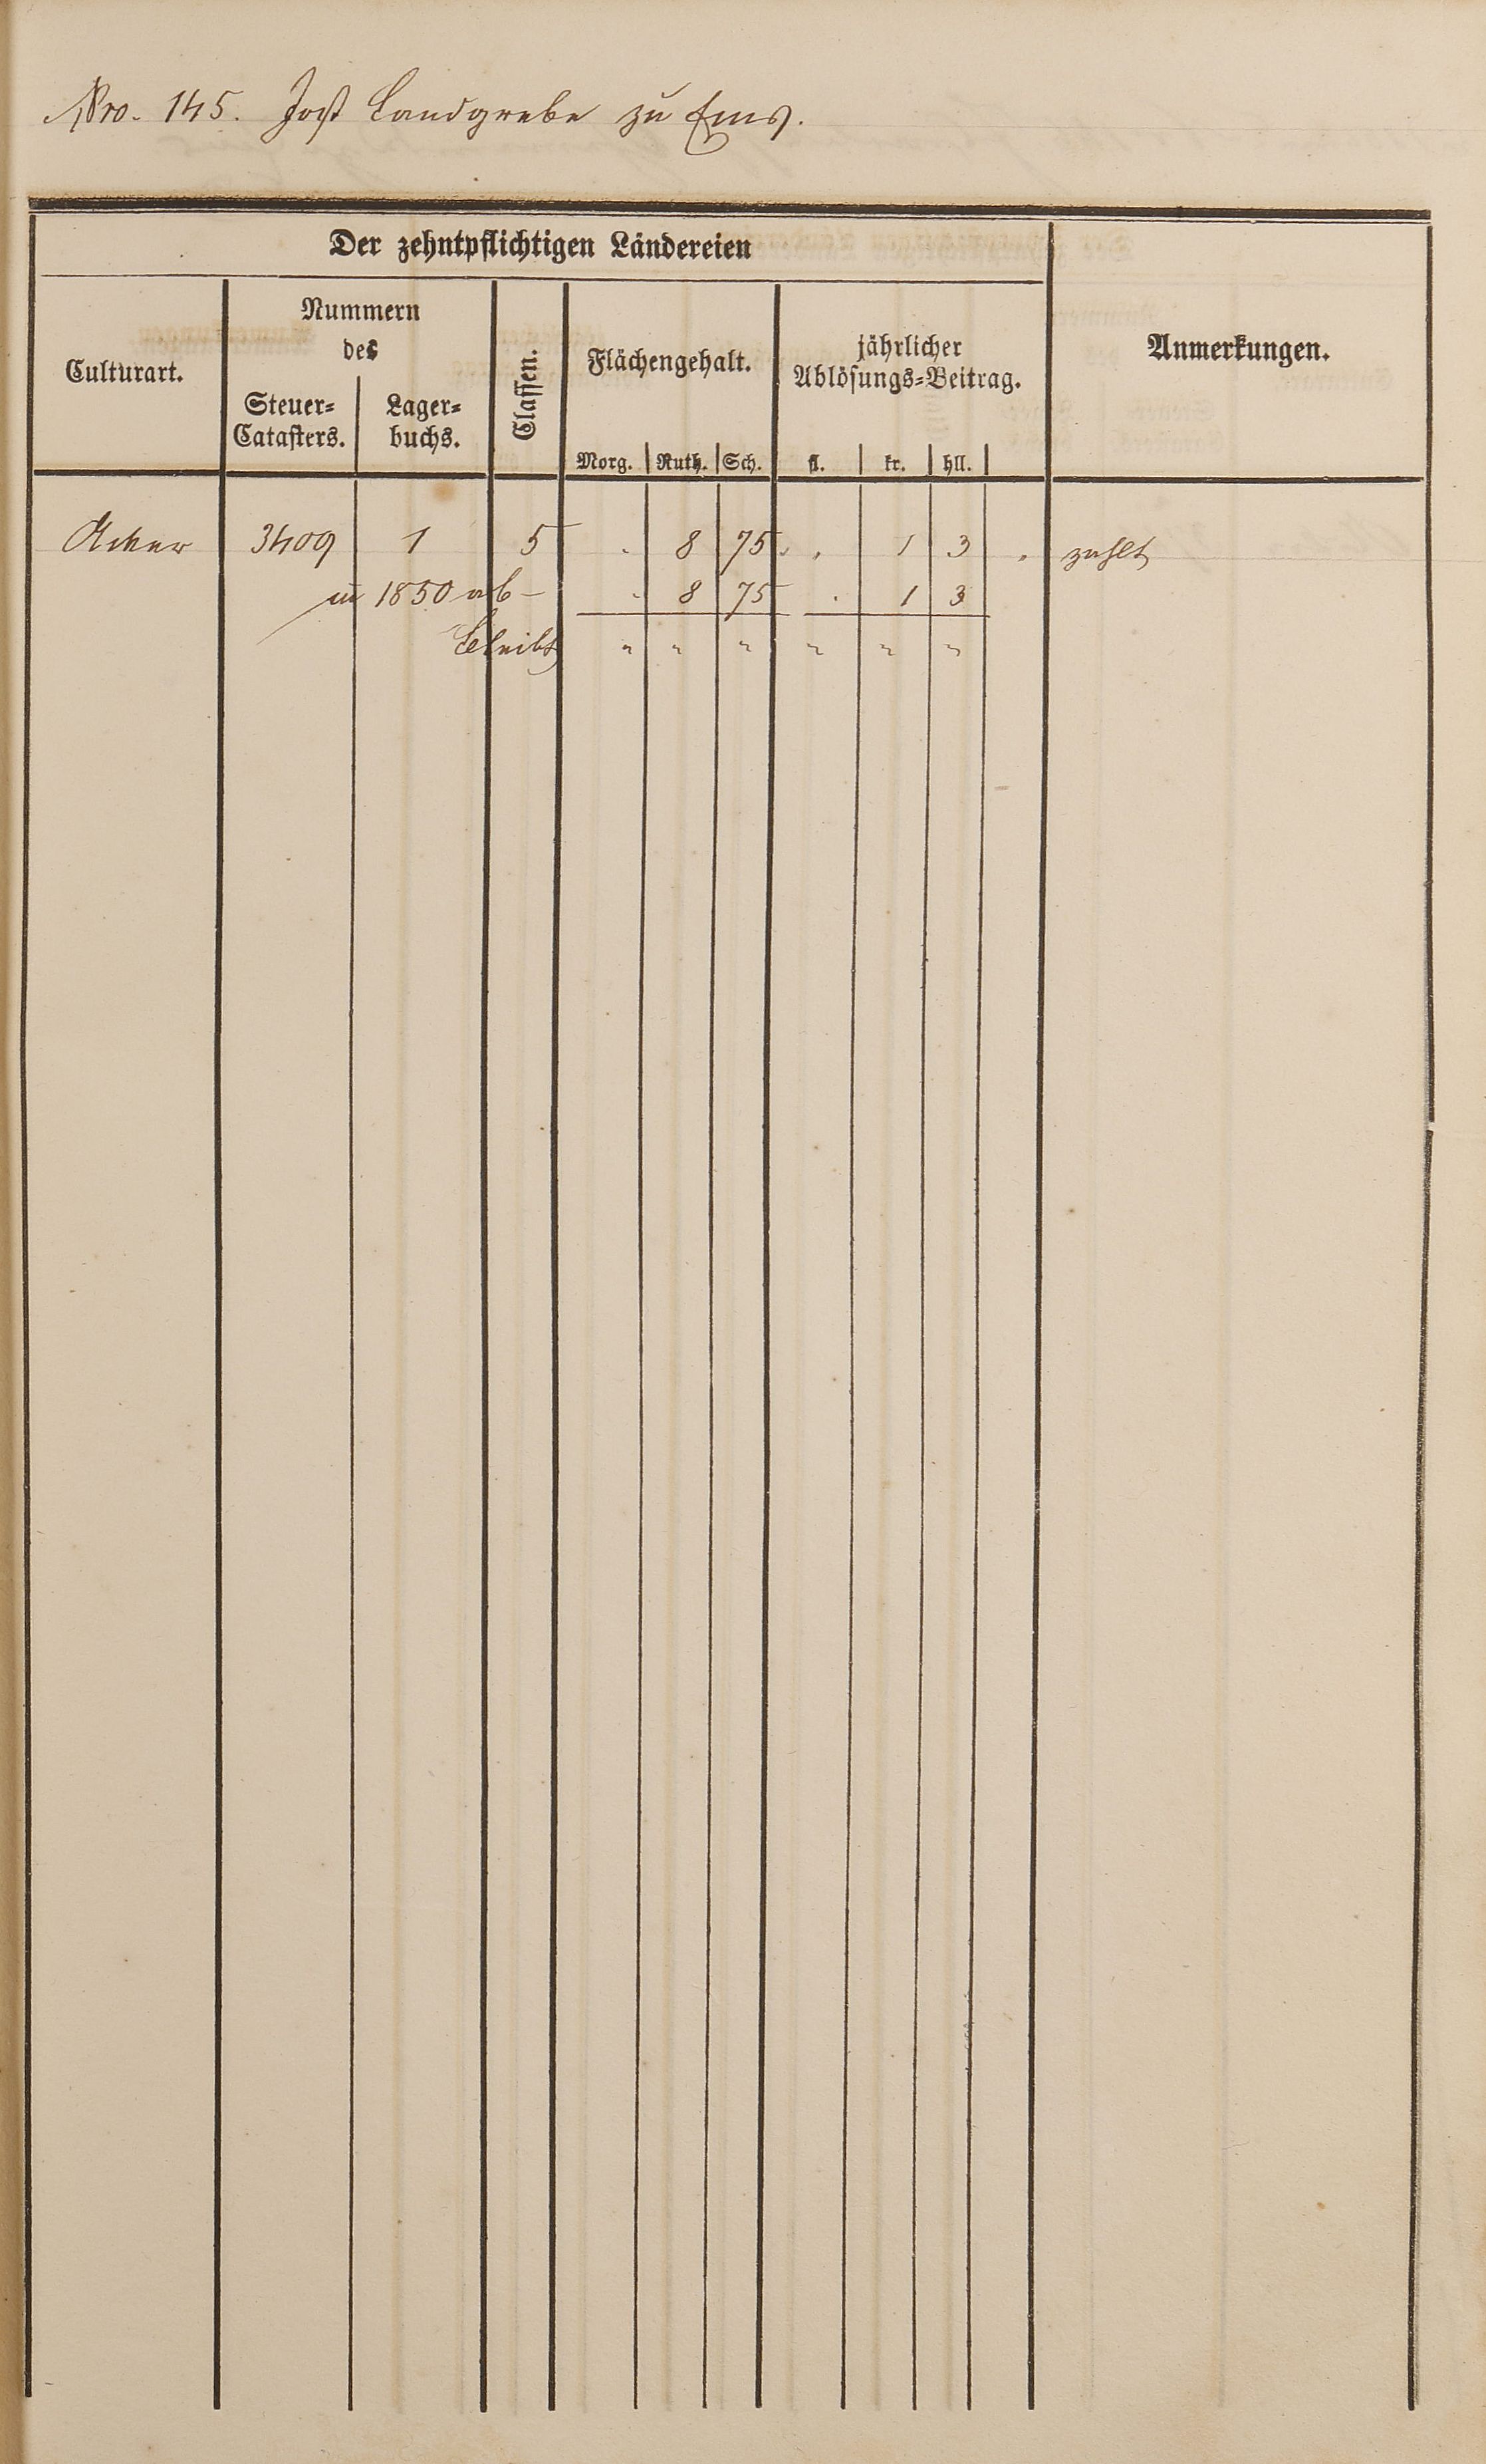 Nro. 145. Jost Landgrebe zu Ems.
Der zehntpflichtigen Ländereien
Culturart.
Nummern
des
Steuer-
Catasters.
Lager-
buchs.
Classen.
Flächengehalt.
Morg. Ruth. Sch.
jährlicher
Ablösungs-Beitrag.
fl. kr. hll.
Anmerkungen.
Acker 3409 1 5 . 8 75 . . 1 3 . zahlt
in 1850 ab - . 8 75 . 1 3
bleibt " " " " " "